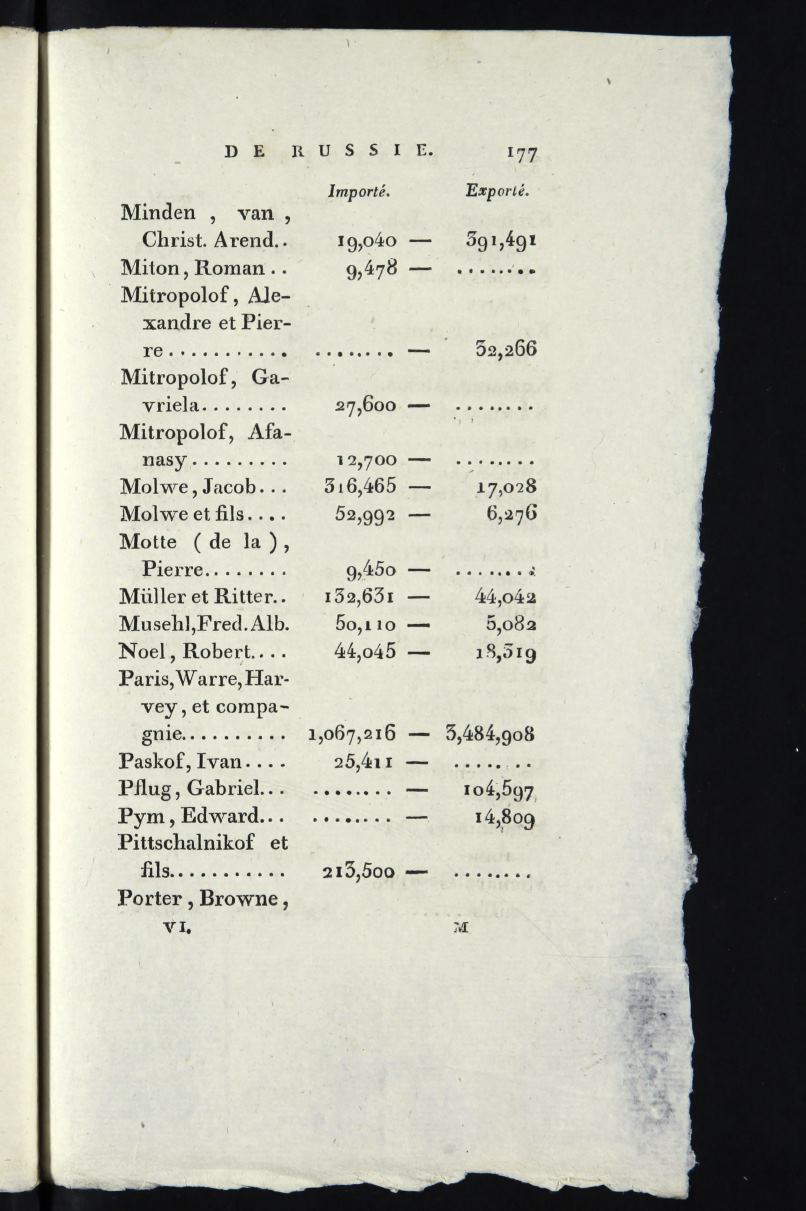 DE RUSSIE. 177
Importé. Exporté.
Minden , van ,
Christ. Arend.. 19,040 — 391,491
Miton, Roman .. 9,478 — ........
Mitropolof, Ale-
xandre et Pier-
re........... ........ — 32,266
Mitropolof, Ga-
vriela........ 27,600 — ........
Mitropolof, Afa-
nasy......... 12,700 — ........
Molwe, Jacob... 316,465 — 17,028
Molwe et fils.... 52,992 — 6,276
Motte ( de la ),
Pierre........ 9,450 — ........
Müller et Ritter.. 132,631 — 44,042
Musehl,Fred.Alb. 50,110 — 5,082
Noel, Robert.... 44,045 — 18,319
Paris,Warre,Har-
vey, et compa-
gnie.......... 1,067,216 — 3,484,908
Paskof, Ivan.... 25,411 — ........
Pflug, Gabriel... ........ — 104,597
Pym, Edward... ........ — 14,809
Pittschalnikof et
fils........... 213,500 — ........
Porter, Browne,
VI. M